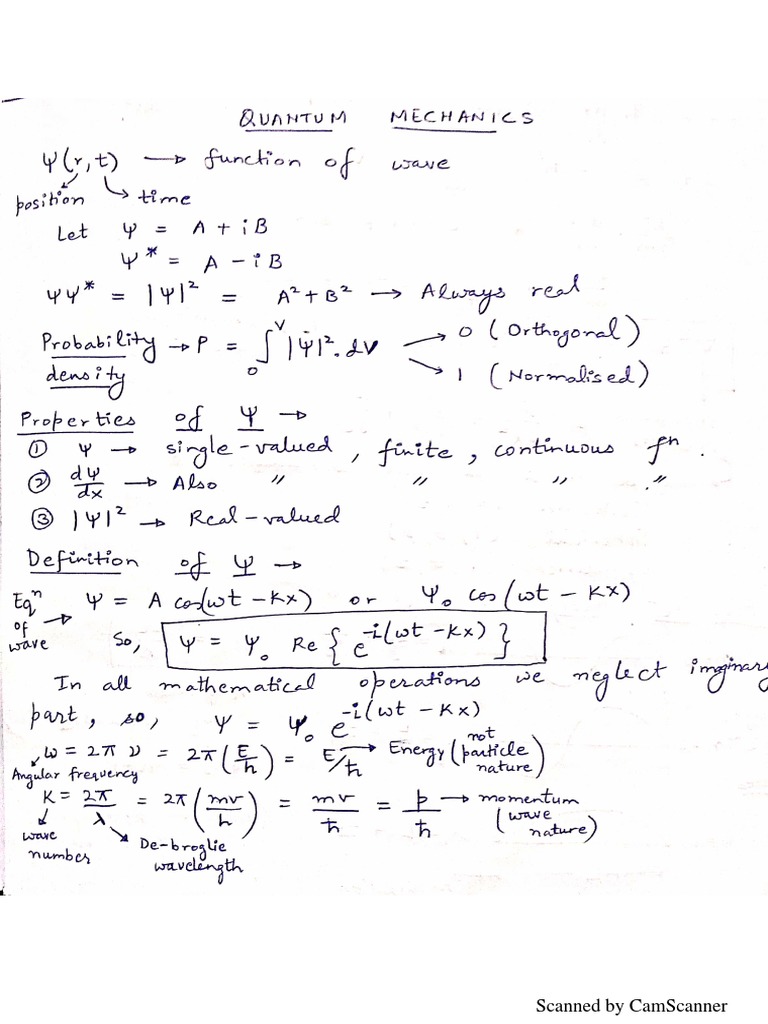 QUANTUM MECHANICS
Ψ(r,t) → function of wave
position time
Let Ψ = A + iB
Ψ* = A - iB
ΨΨ* = |Ψ|² = A² + B² → Always real
Probability density → P = ∫₀ⱽ |Ψ|². dV → 0 (Orthogonal)
→ 1 (Normalised)
Properties of Ψ →
① Ψ → single-valued, finite, continuous fⁿ.
② dΨ/dx → Also " " " "
③ |Ψ|² → Real-valued
Definition of Ψ →
Eqⁿ of wave → Ψ = A cos(ωt - Kx) or Ψ₀ cos(ωt - Kx)
So, Ψ = Ψ₀ Re{e^-i(ωt - Kx)}
In all mathematical operations we neglect imginary
part, so, Ψ = Ψ₀ e^-i(ωt - Kx)
ω = 2πν = 2π(E/h) = E/ħ → Energy (not particle nature)
Angular frequency
K = 2π/λ = 2π(mv/h) = mv/ħ = p/ħ → momentum (wave nature)
wave number De-broglie wavelength
Scanned by CamScanner